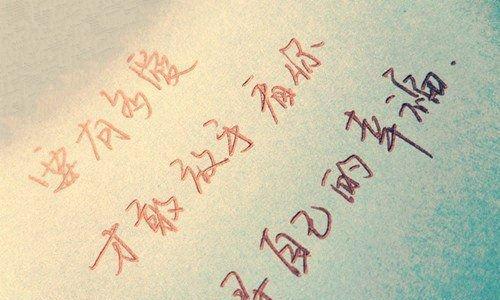 要有多爱
才敢放手看你
寻自己的幸福.